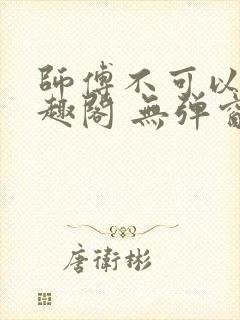 師傅不可以
趣閣 無彈窗
唐衛彬